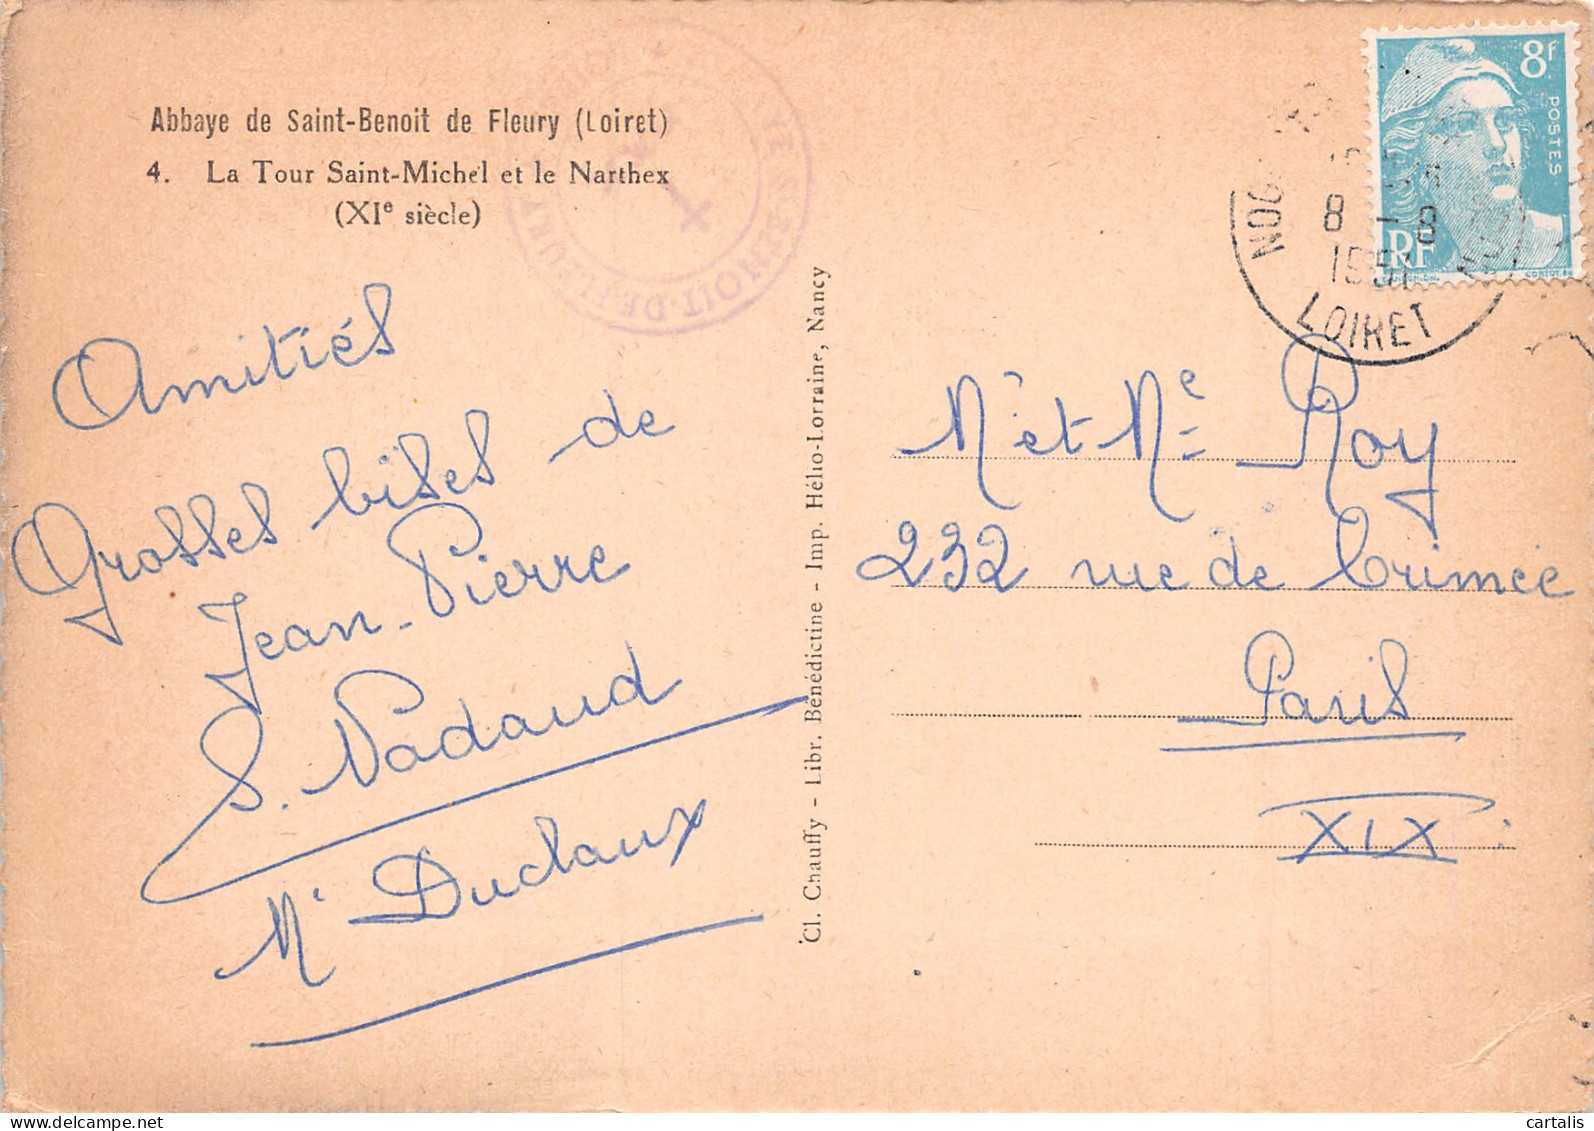 Abbaye de Saint-Benoit de Fleury (Loiret)
4. La Tour Saint-Michel et le Narthex
(XIe siècle)
Amitiés
Grosses bises de
Jean-Pierre
S. Nadaud
Mr Duclaux
Cl. Chauffy - Libr. Bénédictine - Imp. Hélio-Lorraine, Nancy
8f
POSTES
RF
8 - 8
1951
LOIRET
BENOIT-DE-FLEURY
Mr et Me Roy
232 rue de Crimée
Paris
XIX
cartalis
www.delcampe.net